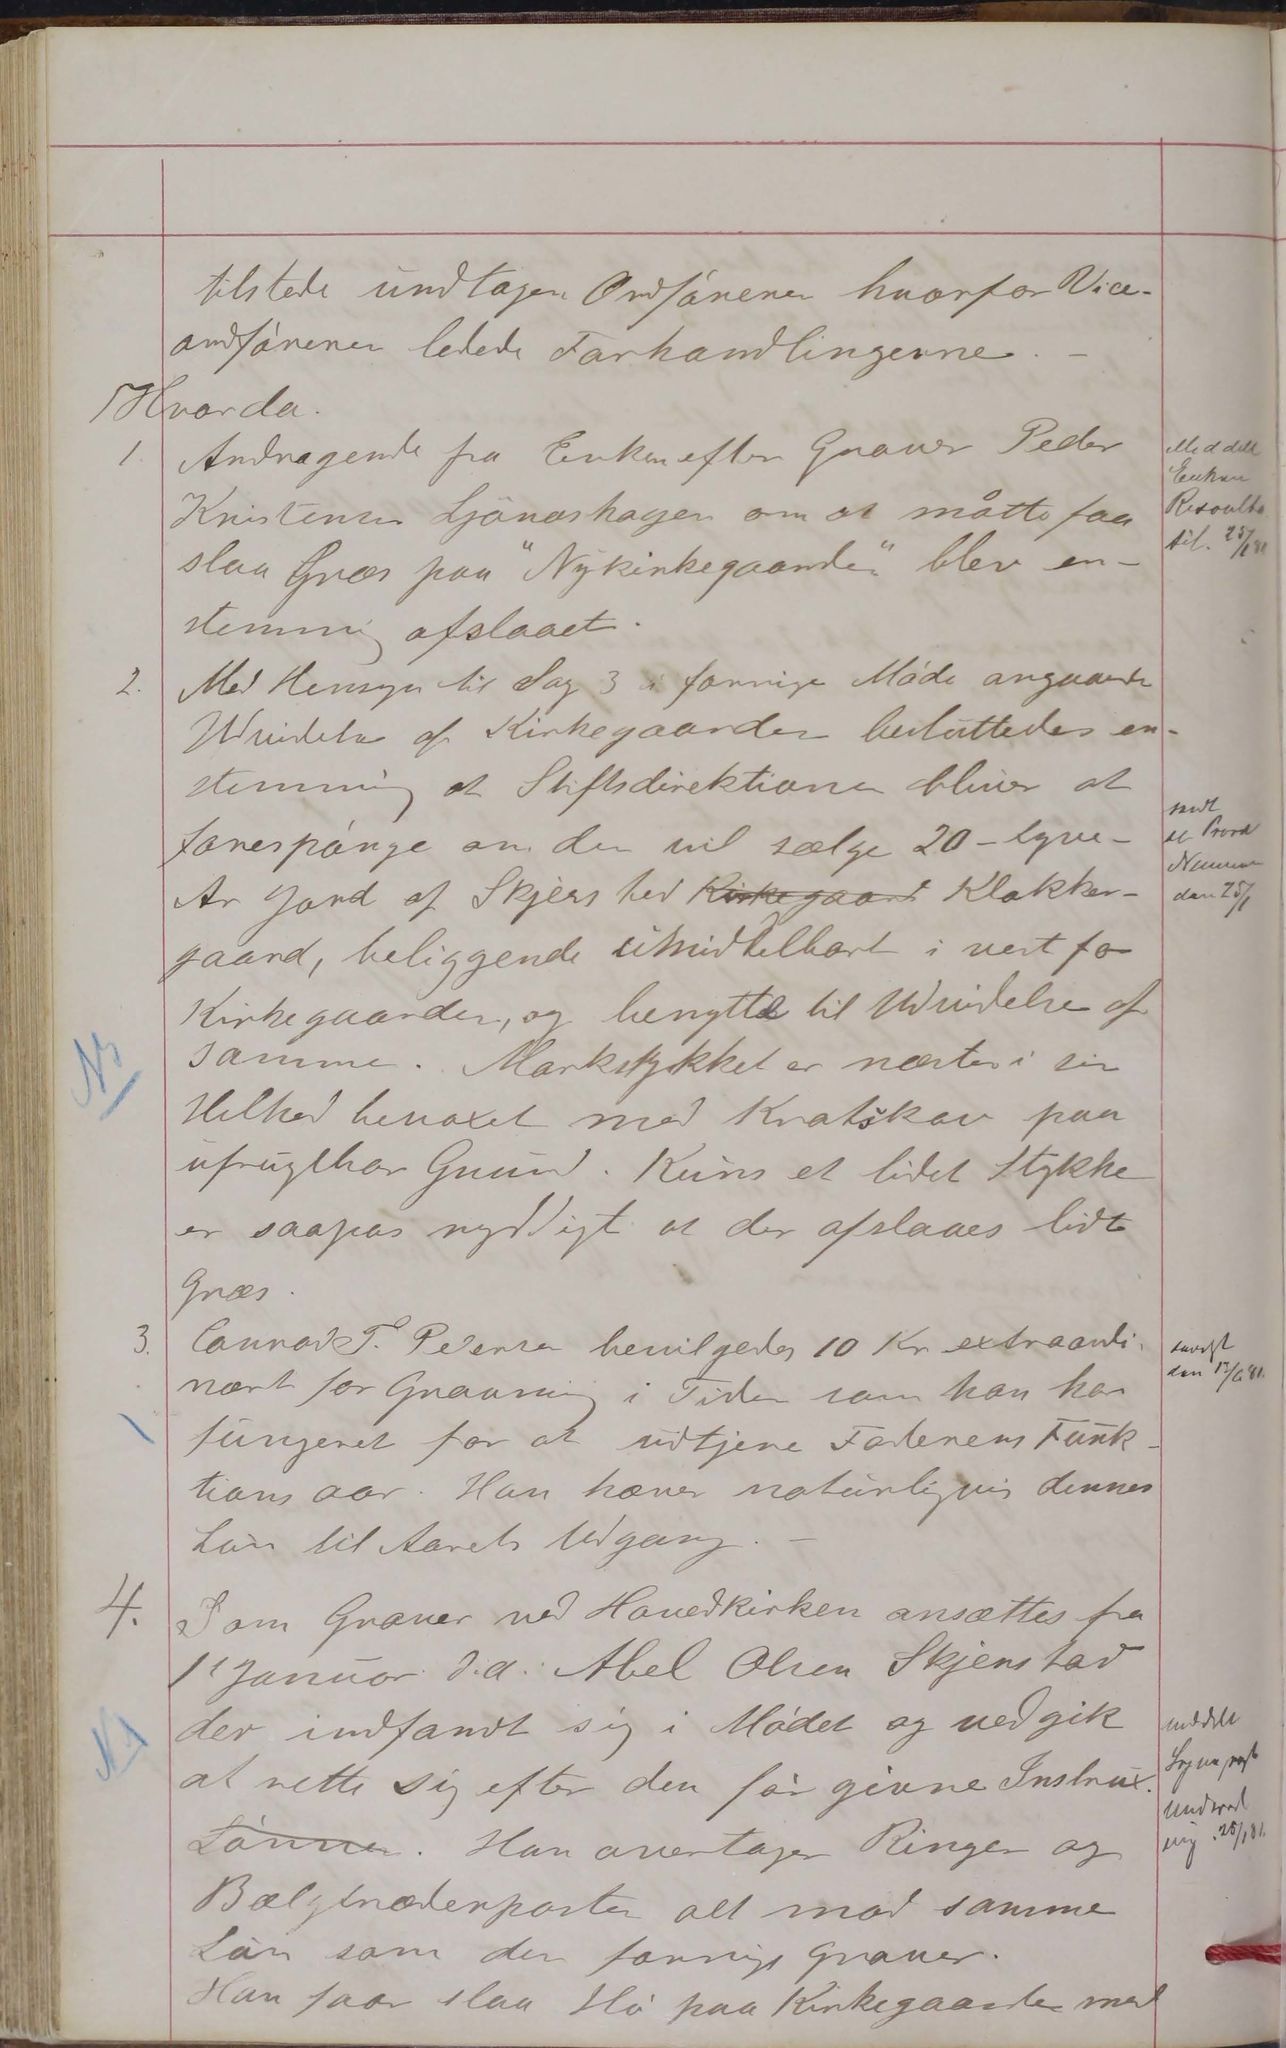 tilstede undtagen Ordføreren hvorfor Vice-
ordføreren ledede Forhandlingerne. -
Hvorda.
1. Andragende fra Enken efter Graver Peder
Kristensen Ljónæshagen om at måtte faa
slaa Græs paa "Nykirkegaarden" blev en-
stemmig afslaaet.
Meddelt
Enken
Resoulta
tit. 25/1 81
2. Med Hensyn til Sag 3 i forrige Møde angaaende
Udvidelse af Kirkegaarden besluttedes en-
stemmig at Stiftsdirektionen bliver at
forespørge om den vil sælge 20 - tyve -
Ar Jord af Skjerstad Kirkegaard Klokker-
gaard, beliggende umidtelbart i vest for
Kirkegaarden, og benyttes til Udvidelse af
samme. Markstykket er næsten i sin
Helhed bevoxet med Kratskov paa
ufrugtbar Grund. Kuns et lidet Stykke
er saapas nyttigt at der afslaaes lidt
Græs.
sendt
den 25/1
3. Conrad T. Pedersen bevilgedes 10 Kr extraordi-
nært for Gravning i Tiden som han har
fungeret for at udtjene Faderens Funk-
tions aar. Han hæver naturligvis dennes
Løn til Aarets Udgang. -
4. Som Graver ved Hovedkirken ansættes fra
1ste Januar d.a. Abel Olsen Skjerstad
der indfandt sig i Mødet og vedgik
at rette sig efter den før givne Instrux.
Lønnen. Han overtager Ringer og
Bælgtræderposten alt mod samme
Løn som den forrige Graver.
Han faar slaa Hø paa Kirkegaarden med
meddelt
25/1 81.